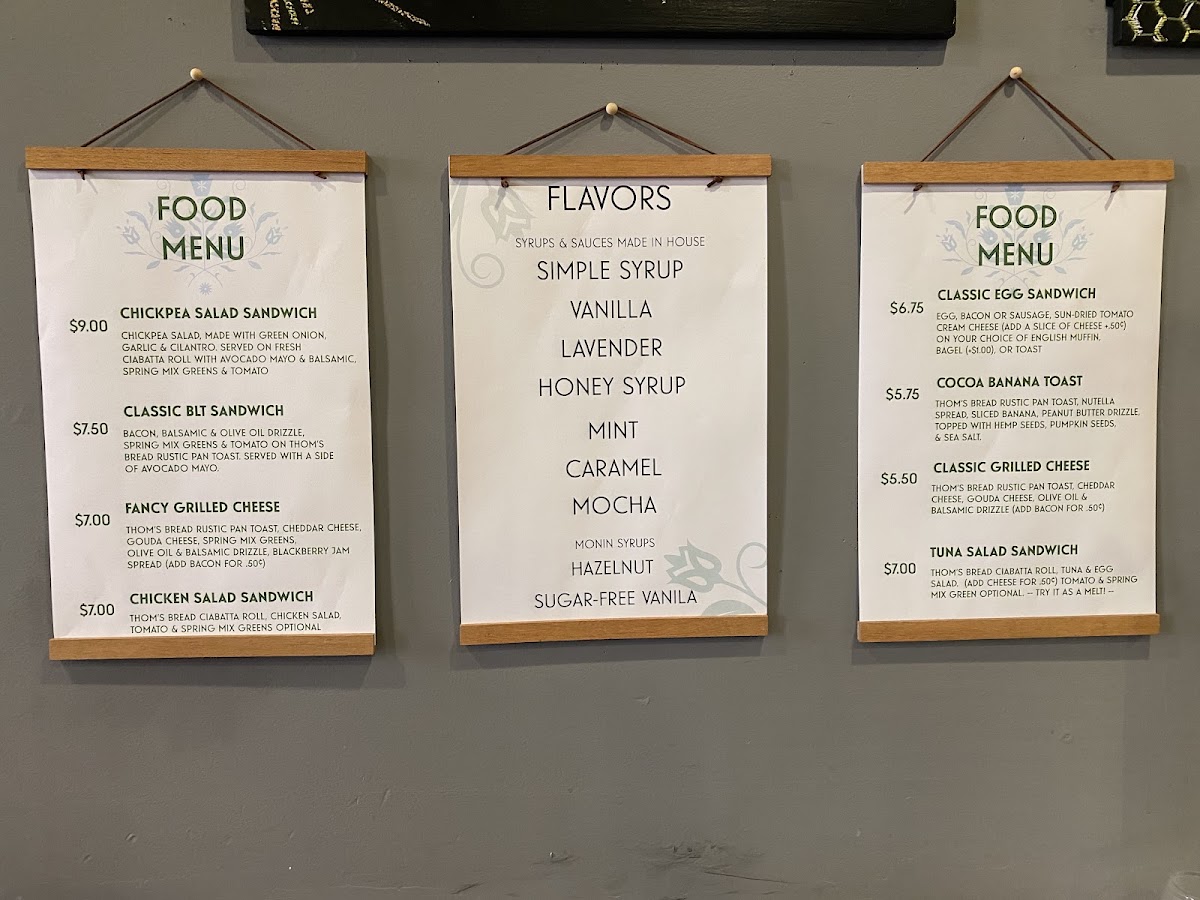 FOOD
MENU
$9.00
CHICKPEA SALAD SANDWICH
CHICKPEA SALAD, MADE WITH GREEN ONION,
GARLIC & CILANTRO. SERVED ON FRESH
CIABATTA ROLL WITH AVOCADO MAYO & BALSAMIC,
SPRING MIX GREENS & TOMATO
$7.50
CLASSIC BLT SANDWICH
BACON, BALSAMIC & OLIVE OIL DRIZZLE,
SPRING MIX GREENS & TOMATO ON THOM'S
BREAD RUSTIC PAN TOAST. SERVED WITH A SIDE
OF AVOCADO MAYO.
$7.00
FANCY GRILLED CHEESE
THOM'S BREAD RUSTIC PAN TOAST, CHEDDAR CHEESE,
GOUDA CHEESE, SPRING MIX GREENS,
OLIVE OIL & BALSAMIC DRIZZLE, BLACKBERRY JAM
SPREAD (ADD BACON FOR .50¢)
$7.00
CHICKEN SALAD SANDWICH
THOM'S BREAD CIABATTA ROLL, CHICKEN SALAD,
TOMATO & SPRING MIX GREENS OPTIONAL
FLAVORS
SYRUPS & SAUCES MADE IN HOUSE
SIMPLE SYRUP
VANILLA
LAVENDER
HONEY SYRUP
MINT
CARAMEL
MOCHA
MONIN SYRUPS
HAZELNUT
SUGAR-FREE VANILA
FOOD
MENU
$6.75
CLASSIC EGG SANDWICH
EGG, BACON OR SAUSAGE, SUN-DRIED TOMATO
CREAM CHEESE (ADD A SLICE OF CHEESE +.50¢)
ON YOUR CHOICE OF ENGLISH MUFFIN,
BAGEL (+$1.00), OR TOAST
$5.75
COCOA BANANA TOAST
THOM'S BREAD RUSTIC PAN TOAST, NUTELLA
SPREAD, SLICED BANANA, PEANUT BUTTER DRIZZLE,
TOPPED WITH HEMP SEEDS, PUMPKIN SEEDS,
& SEA SALT.
$5.50
CLASSIC GRILLED CHEESE
THOM'S BREAD RUSTIC PAN TOAST, CHEDDAR
CHEESE, GOUDA CHEESE, OLIVE OIL &
BALSAMIC DRIZZLE (ADD BACON FOR .50¢)
$7.00
TUNA SALAD SANDWICH
THOM'S BREAD CIABATTA ROLL, TUNA & EGG
SALAD. (ADD CHEESE FOR .50¢) TOMATO & SPRING
MIX GREEN OPTIONAL. -- TRY IT AS A MELT! --